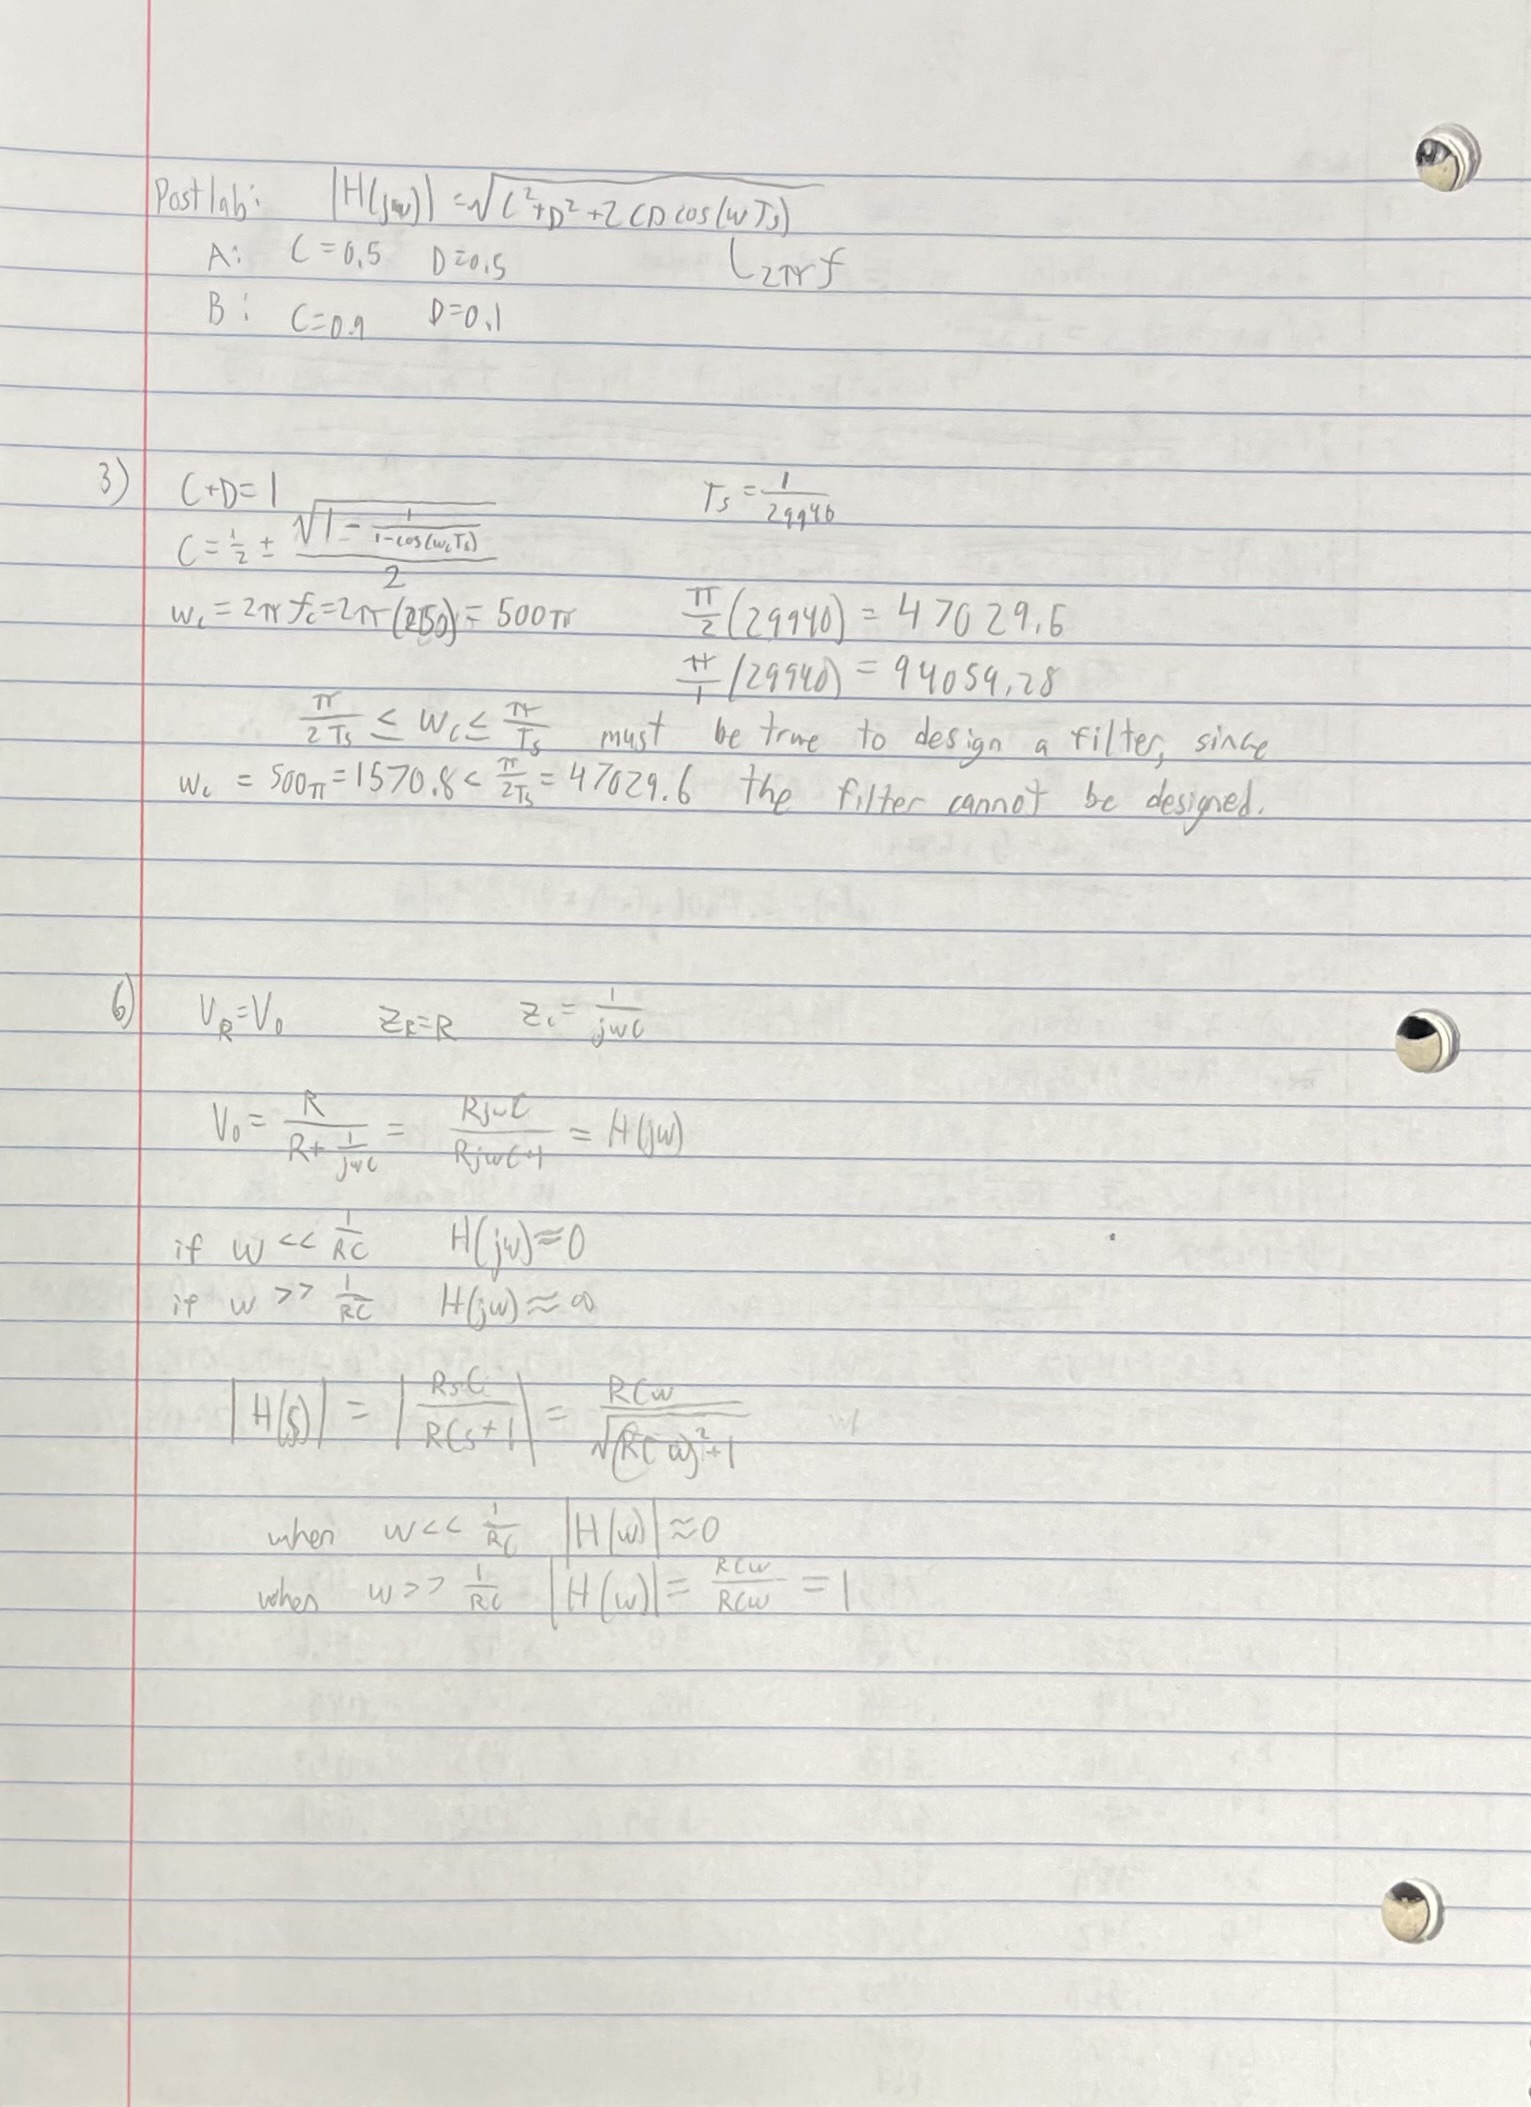 Postlab: |H(jw)| = √(C²+D²+2CD cos(wTs))
A: C=0.5 D=0.5 2πf
B: C=0.9 D=0.1
3) C+D=1 Ts = 1/29940
C = 1/2 ± √(1 - 1/(1-cos(wcTs)))/2
wc = 2πfc = 2π(250) = 500π π/2 (29940) = 47029.6
π/1 (29940) = 94059.28
π/2Ts ≤ wc ≤ π/Ts must be true to design a filter, since
wc = 500π = 1570.8 < π/2Ts = 47029.6 the filter cannot be designed.
6) VR=V0 ZR=R Zc = 1/jwC
V0 = R/(R+1/jwC) = RjwC/(RjwC+1) = H(jw)
if w << 1/RC H(jw)≈0
if w >> 1/RC H(jw)≈∞
|H(s)| = |RsC/(RCs+1)| = RCw/√((RCw)²+1)
when w << 1/RC |H(w)|≈0
when w >> 1/RC |H(w)| = RCw/RCw = 1